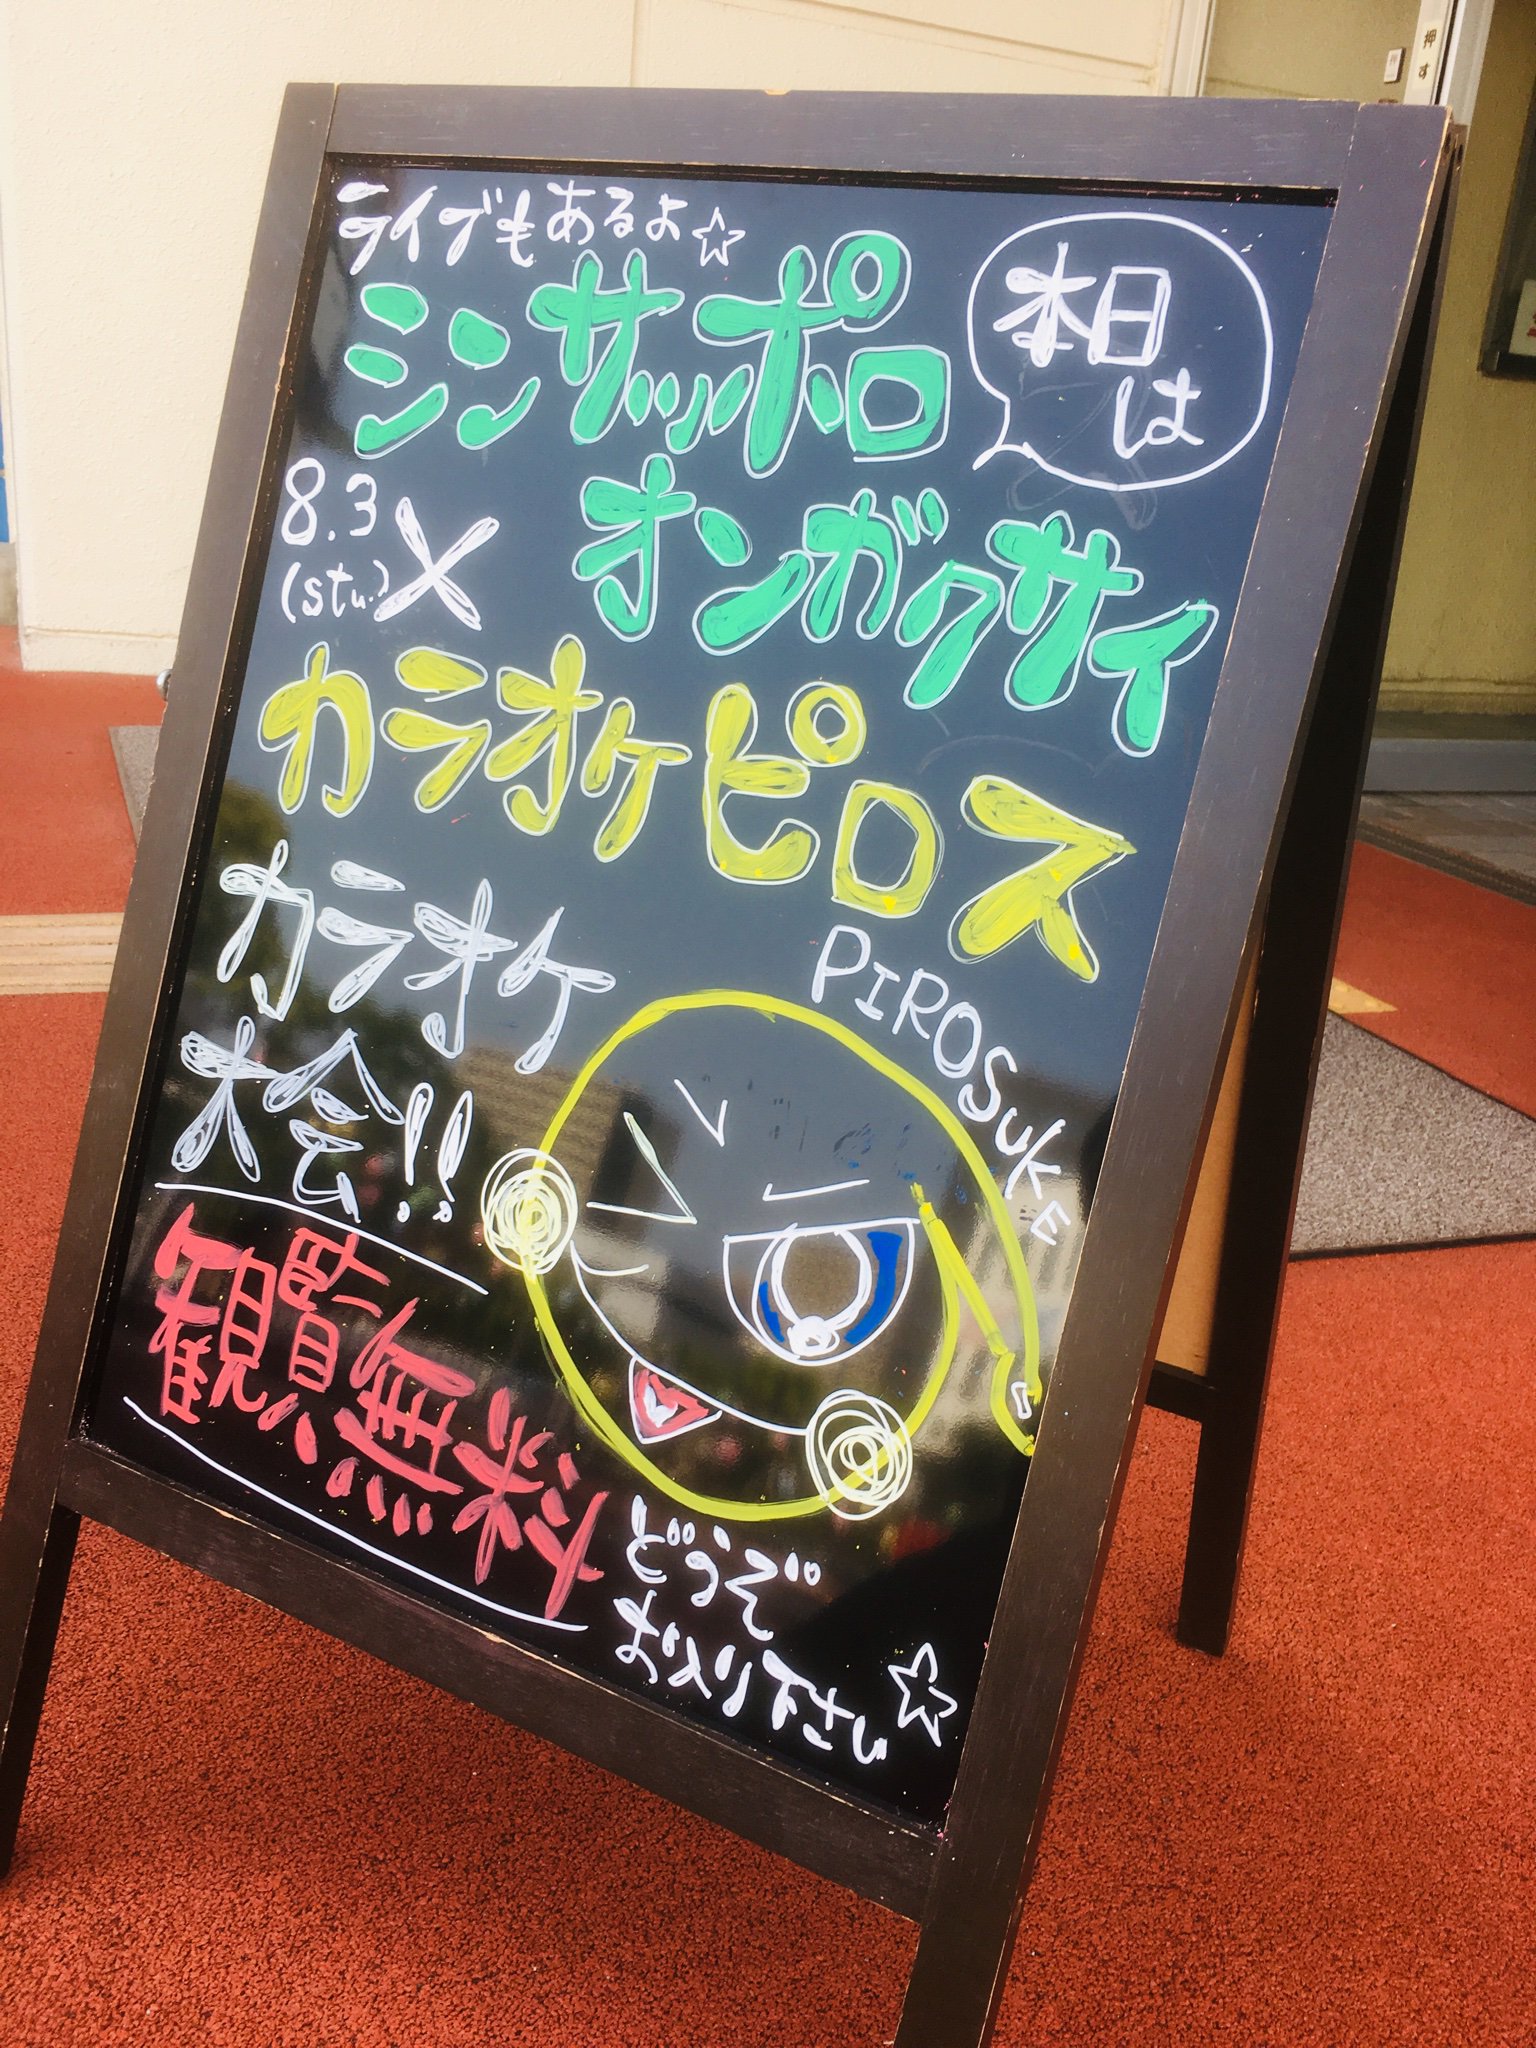 ライブもあるよ☆
本日
は
シンサッポロ
オンガクサイ
8.3
(stu.)
×
カラオケピロス
PIROSUKE
カラオケ
大会!!
観覧無料
どうぞ
お入り下さい☆
押す